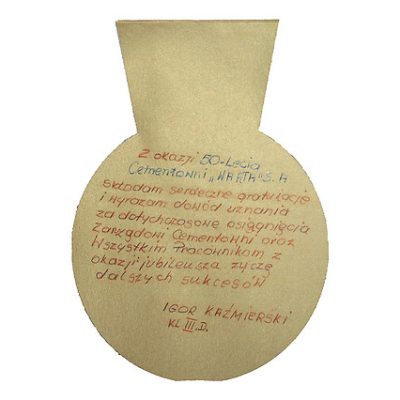 Z okazji 50-Lecia
Cementowni „WARTA" S.A
składam serdeczne gratulacje
i wyrażam dowód uznania
za dotychczasowe osiągnięcia
Zarządowi Cementowni oraz
Wszystkim Pracownikom z
okazji jubileusza życzę
dalszych sukcesów
IGOR KAŹMIERSKI
KL III.D.